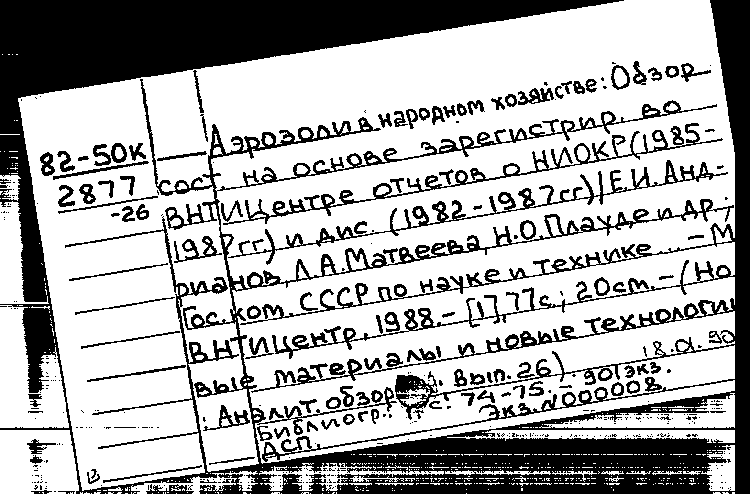 82-50К
2877
-26
Аэрозоли в народном хозяйстве: Обзор
сост. на основе зарегистрир. во
ВНТИЦентре отчетов о НИОКР (1985-
1987гг.) и дис. (1982-1987гг) / Е.И. Анд-
рианов, Л.А. Матвеева, Н.О. Плауде и др.;
Гос. ком. СССР по науке и технике ... - М
ВНТИЦентр, 1988. - [1], 77с.; 20см. - (Но
вые материалы и новые технологии
: Аналит. обзор Вып. 26)
18.01.90
Библиогр.: с. 74-75. - 901экз.
ДСП. Экз. N000008.
В